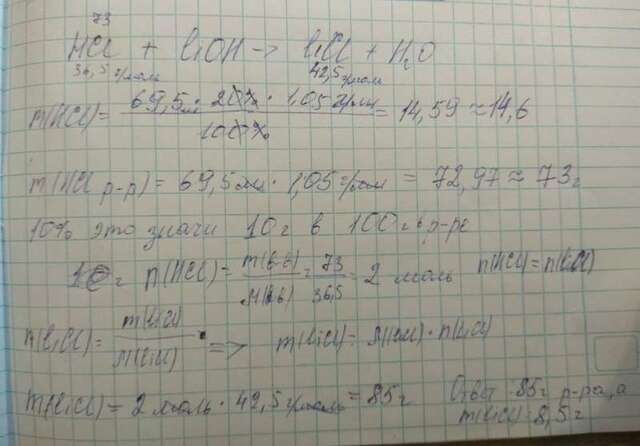 73
HCl + LiOH → LiCl + H₂O
36,5 г/моль 42,5 г/моль
m(HCl) = 69,5 мл · 20% · 1,05 г/мл / 100% = 14,59 ≈ 14,6
m(HCl р-р) = 69,5 мл · 1,05 г/мл = 72,97 ≈ 73 г
10% это значи 10 г в 100 г р-ре
n(HCl) = m(в-в) / M(в-в) = 73 / 36,5 = 2 моль n(HCl) = n(LiCl)
n(LiCl) = m(LiCl) / M(LiCl) => m(LiCl) = M(LiCl) · n(LiCl)
m(LiCl) = 2 моль · 42,5 г/моль = 85 г Ответ 85 г р-ра, а
m(LiCl) 8,5 г